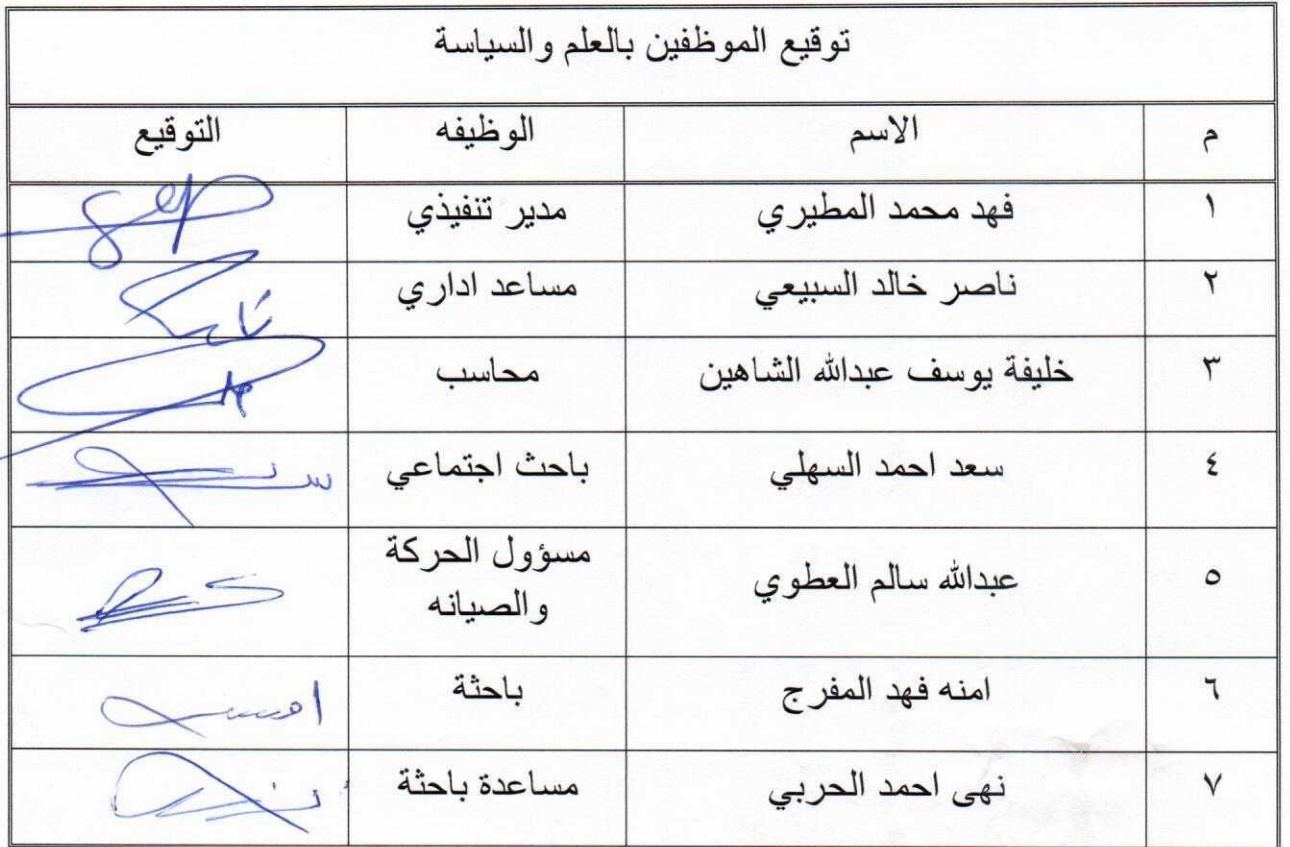 توقيع الموظفين بالعلم والسياسة
م الاسم الوظيفه التوقيع
١ فهد محمد المطيري مدير تنفيذي
٢ ناصر خالد السبيعي مساعد اداري
٣ خليفة يوسف عبدالله الشاهين محاسب
٤ سعد احمد السهلي باحث اجتماعي
٥ عبدالله سالم العطوي مسؤول الحركة
والصيانه
٦ امنه فهد المفرج باحثة
٧ نهى احمد الحربي مساعدة باحثة